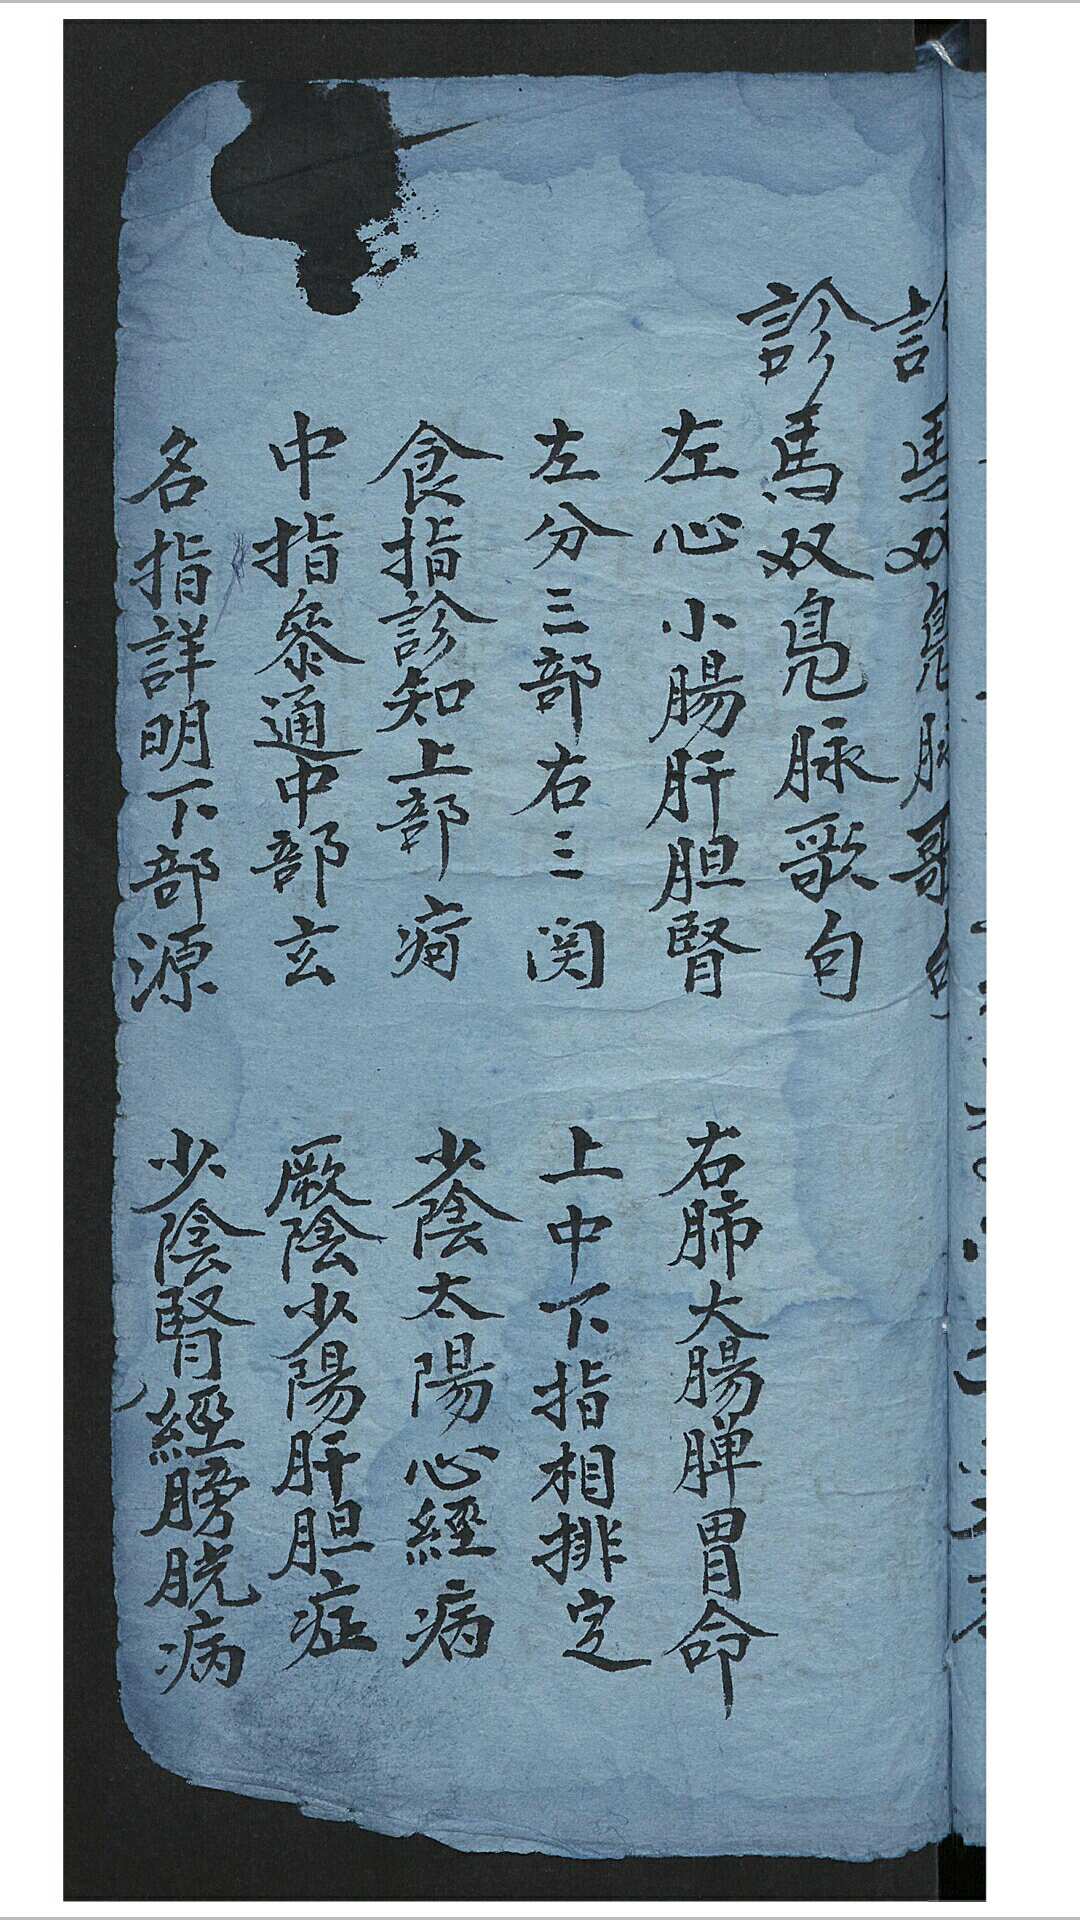 診馬双鳧脉哥句
診馬双鳧脉歌句
左心小腸肝胆腎
右肺大腸脾胃命
左分三部右三関
上中下指相排定
食指診知上部病
少陰太陽心經病
中指叅通中部玄
厥陰少陽肝胆症
名指詳明下部源
少陰腎經膀胱病